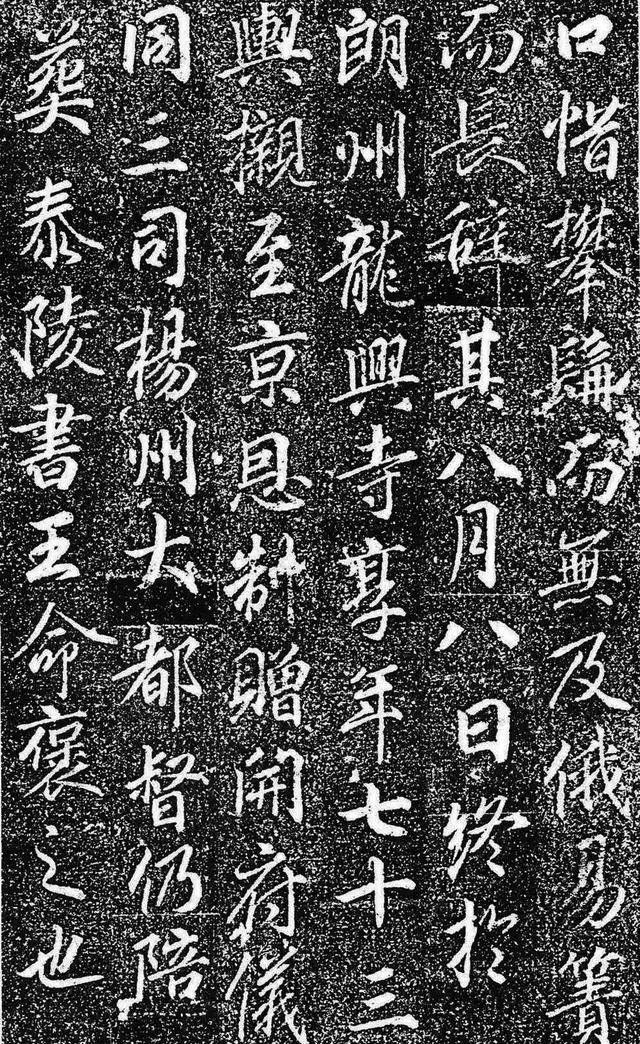 口惜攀髯而無及俄易簀
而長辭其八月八日終於
朗州龍興寺享年七十三
輿櫬至京恩制贈開府儀
同三司楊州大都督仍陪
葬泰陵書王命褒之也